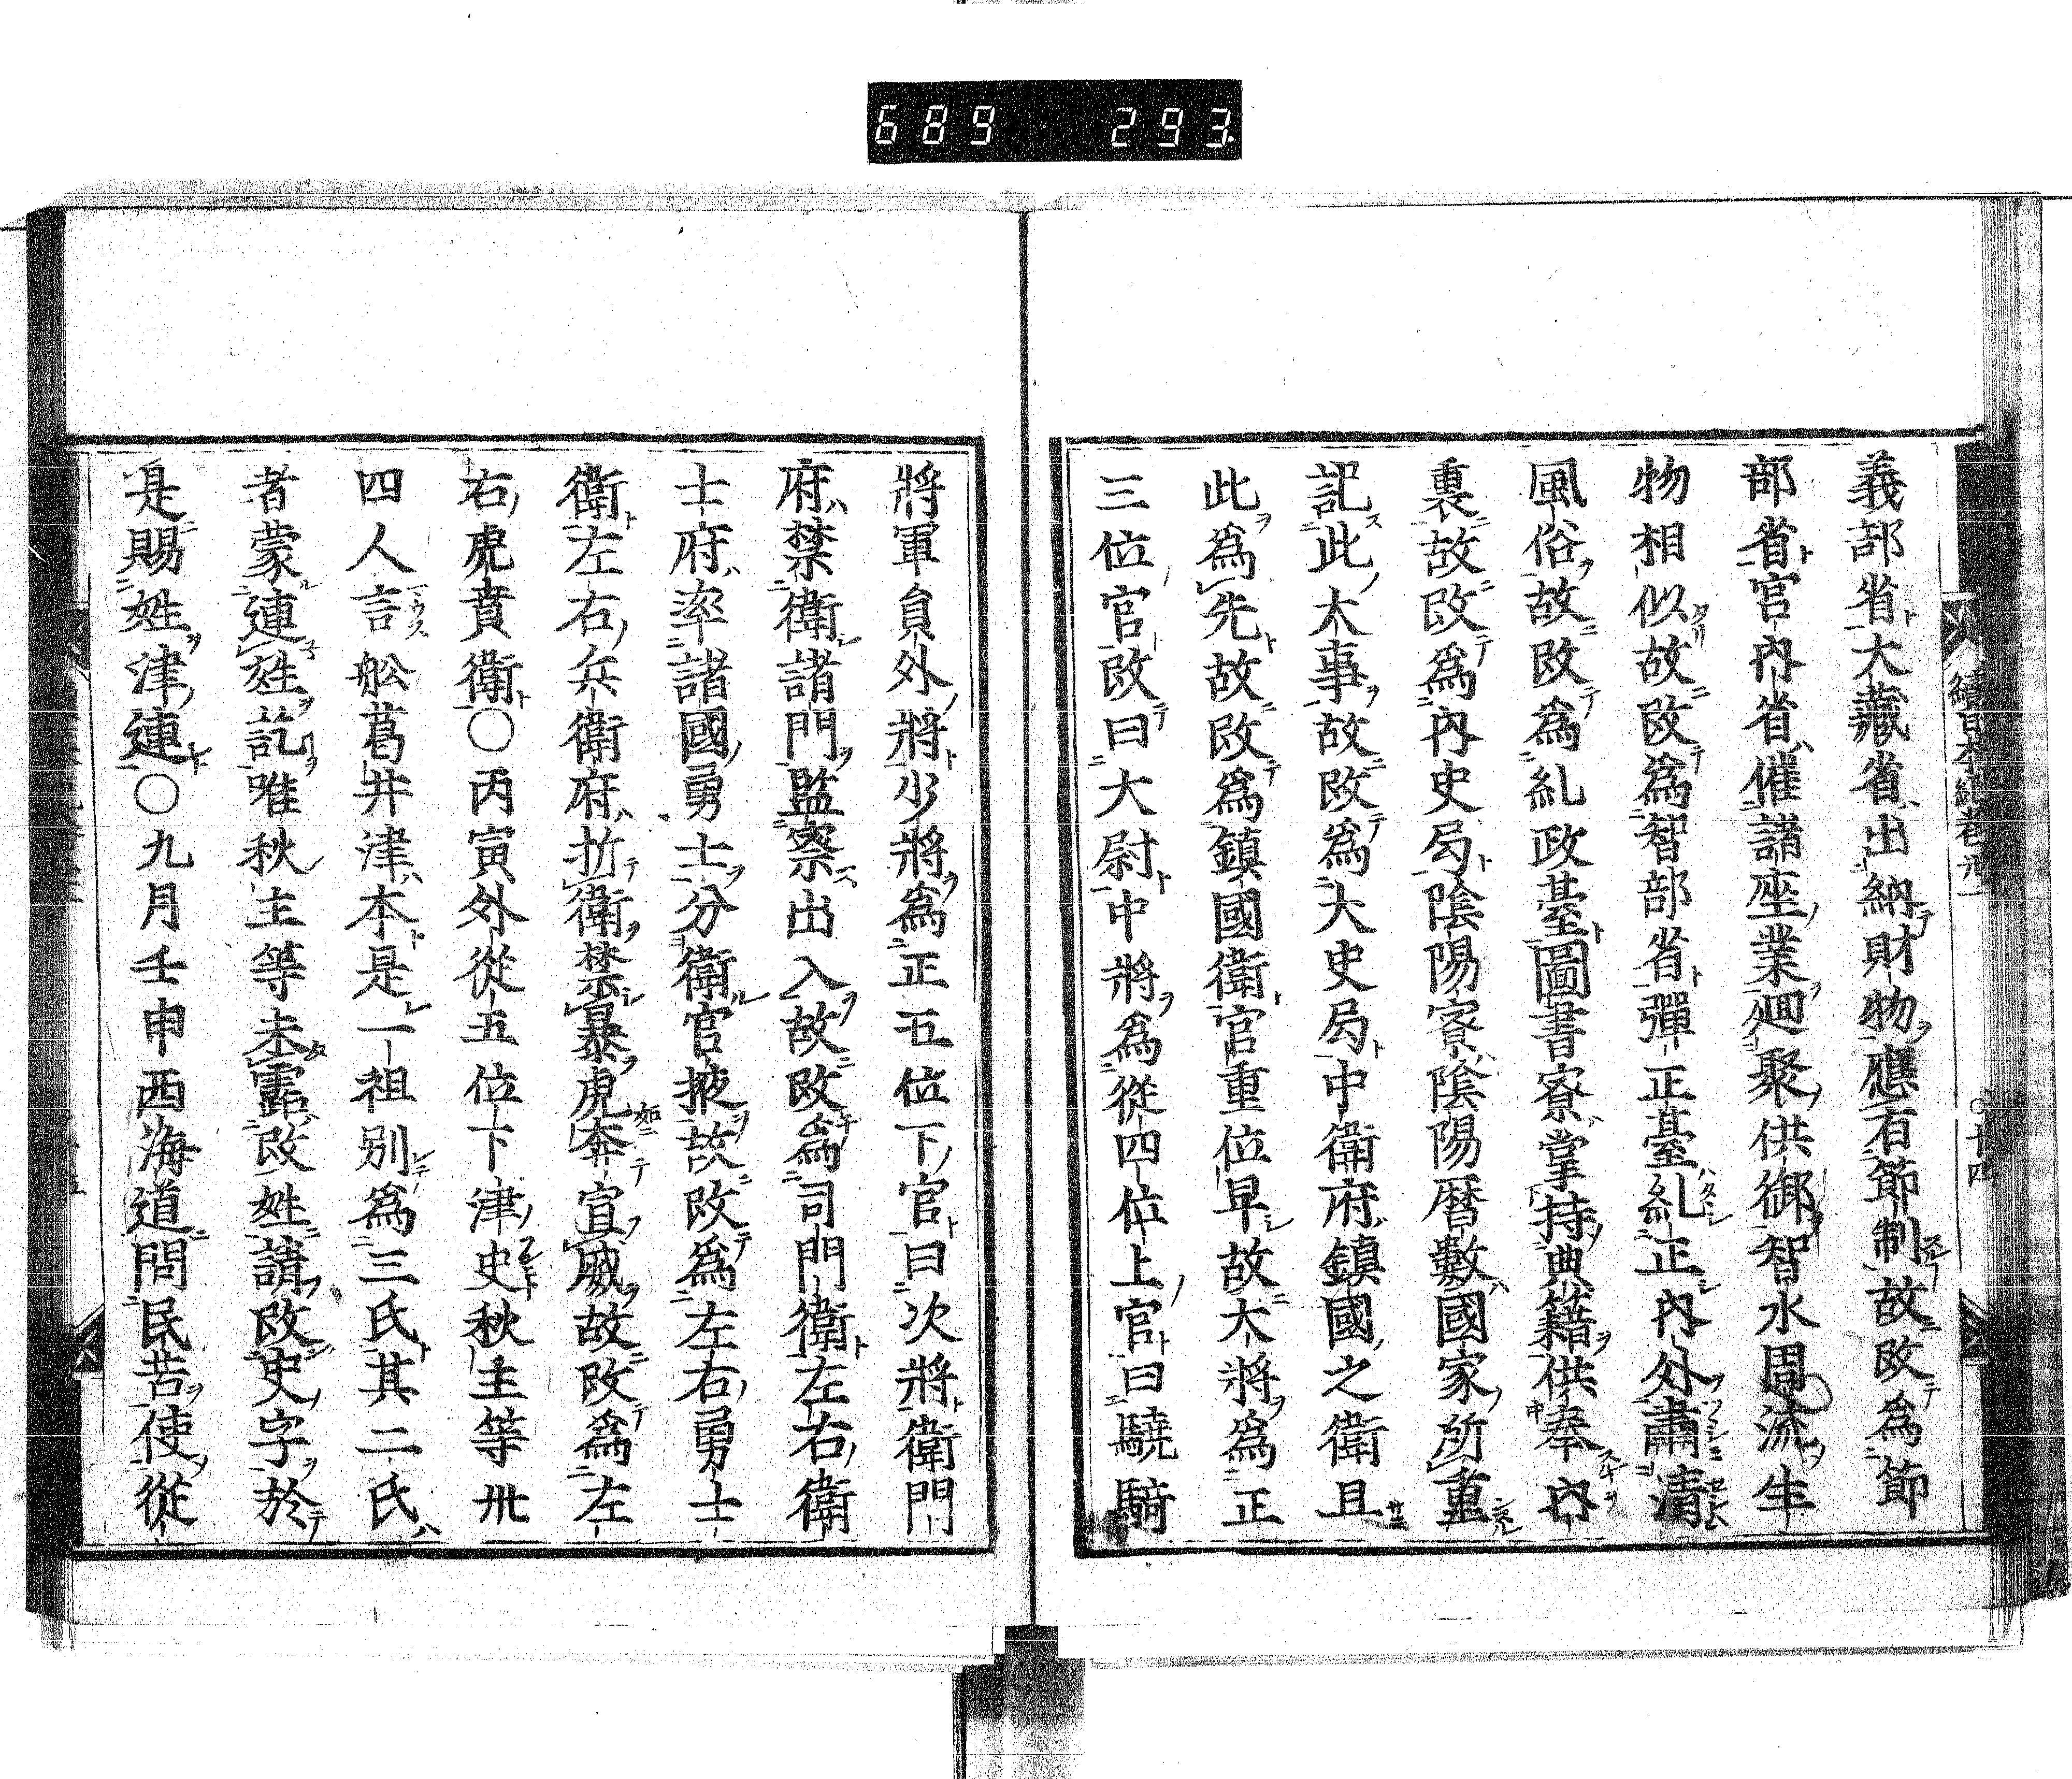 689 293
義部省大藏省出納財物應有節制故改爲節
部省宮內省催諸座業廻聚供御智水周流生
物相似故改爲智部省彈正臺糺正內外肅清
風俗故改爲糺政臺圖書寮掌持典籍供奉內
裏故改爲內史局陰陽寮陰陽曆數國家所重
記此大事故改爲大史局中衞府鎮國之衞且
此爲先故改爲鎮國衞官重位早故大將爲正
三位官改曰大尉中將爲從四位上官曰驍騎
將軍員外將少將爲正五位下官曰次將衞門
府禁衞諸門監察出入故改爲司門衞左右衞
士府率諸國勇士分衞宮掖故改爲左右勇士
衞左右兵衞府折衝禁暴虎奔宣威故改爲左
右虎賁衞〇丙寅外從五位下津史秋主等卅
四人言舩葛井津本是一祖別爲三氏其二氏
者蒙連姓訖唯秋主等未霑改姓請改史字於
是賜姓津連〇九月壬申西海道問民苦使從
續日本紀卷廿一
〇十四